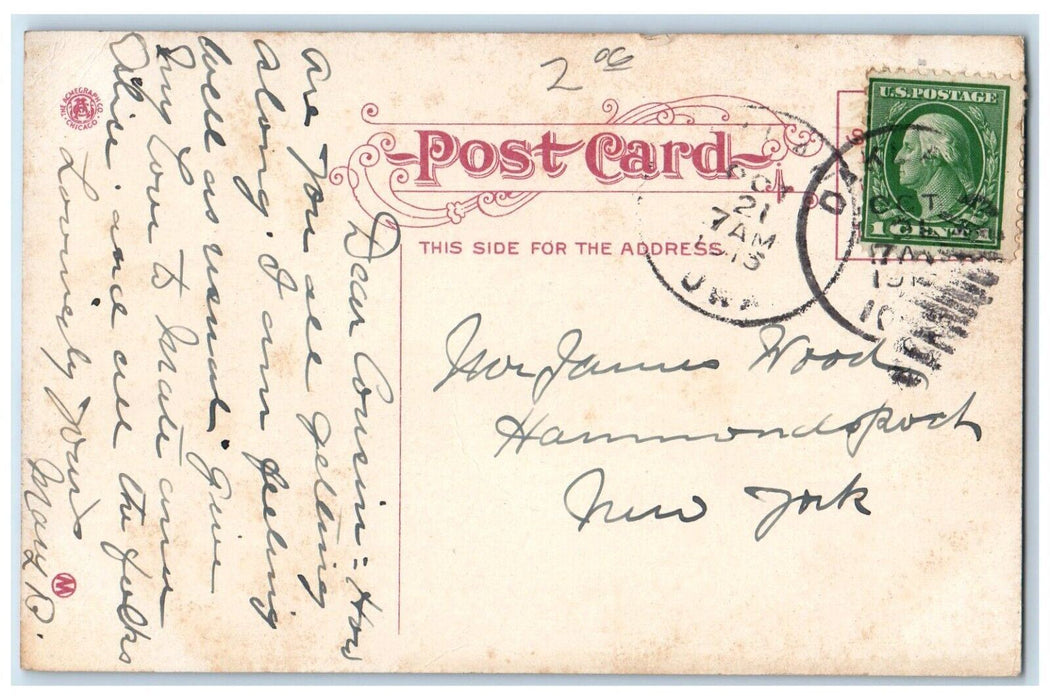 2 00
Post Card
THIS SIDE FOR THE ADDRESS
U.S. POSTAGE
1 CENT 1
OCT
21
7 AM
1913
OCT
7 AM
Mr James Wood
Hammondsport
New York
Dear Cousin = How
are you all getting
along. I am feeling
well as usual. give
my love to and
Alice. and all the folks
Lovingly Yours
Mary D.
THE ACMEGRAPH CO.
CHICAGO
W